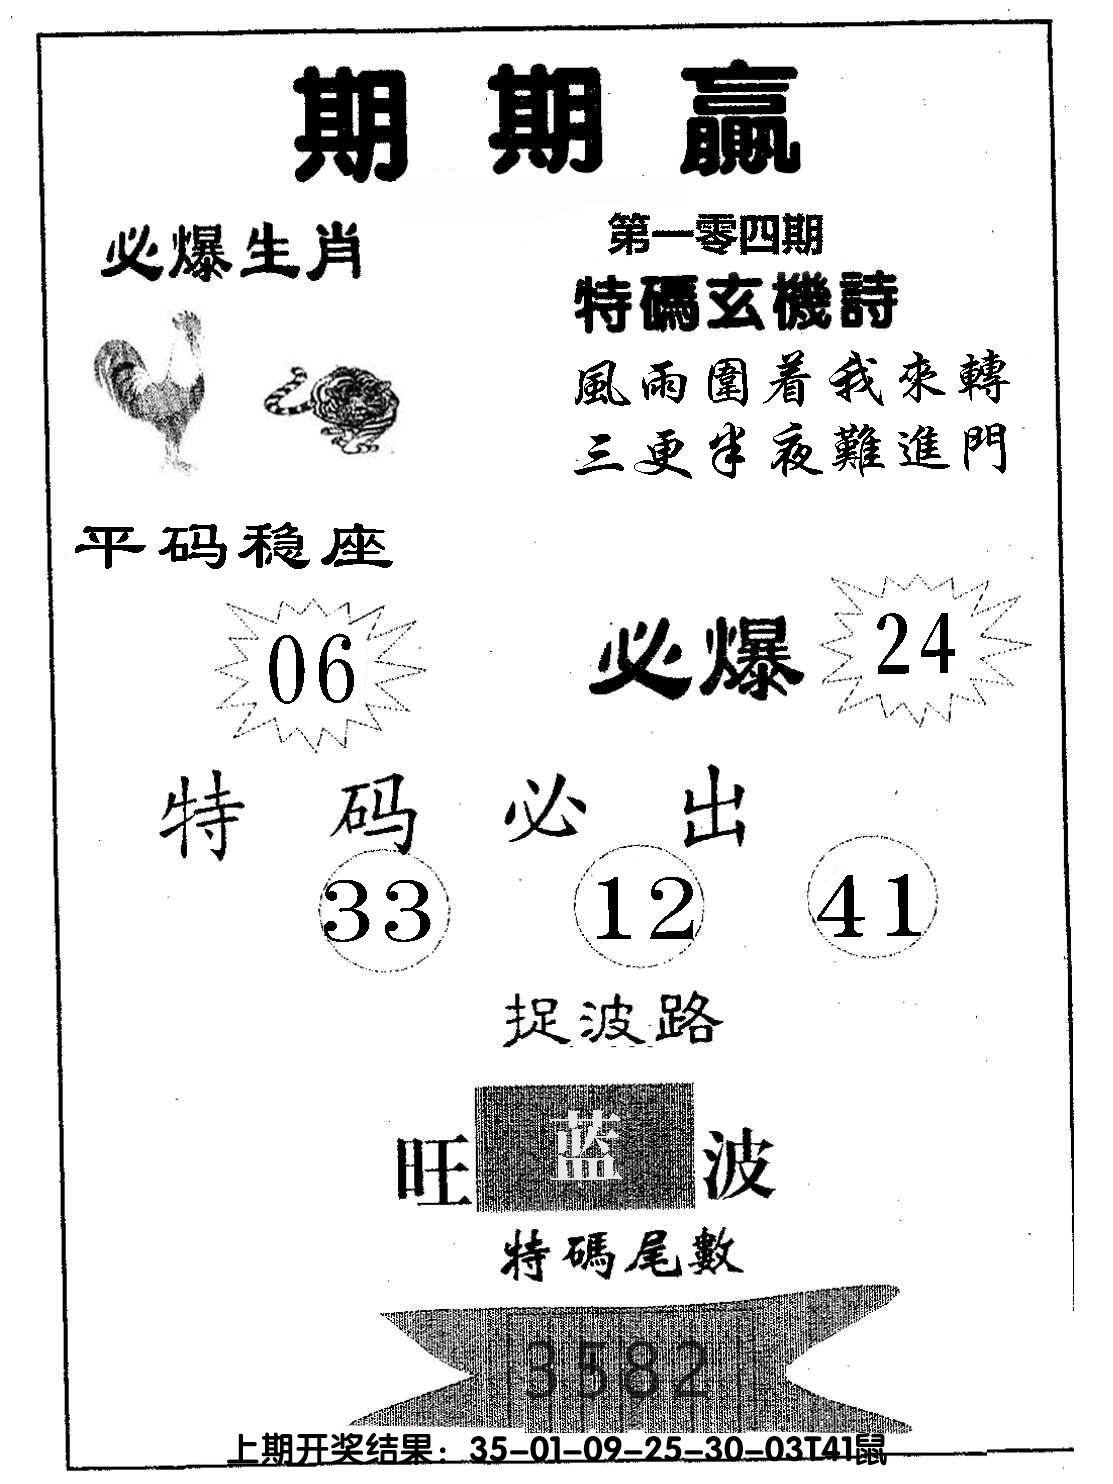 期期赢
必爆生肖
第一零四期
特碼玄機詩
風雨圍着我來轉
三更半夜難進門
平码稳座
06
必爆 24
特码必出
33 12 41
捉波路
旺 蓝 波
特碼尾數
3582
上期开奖结果：35-01-09-25-30-03T41鼠